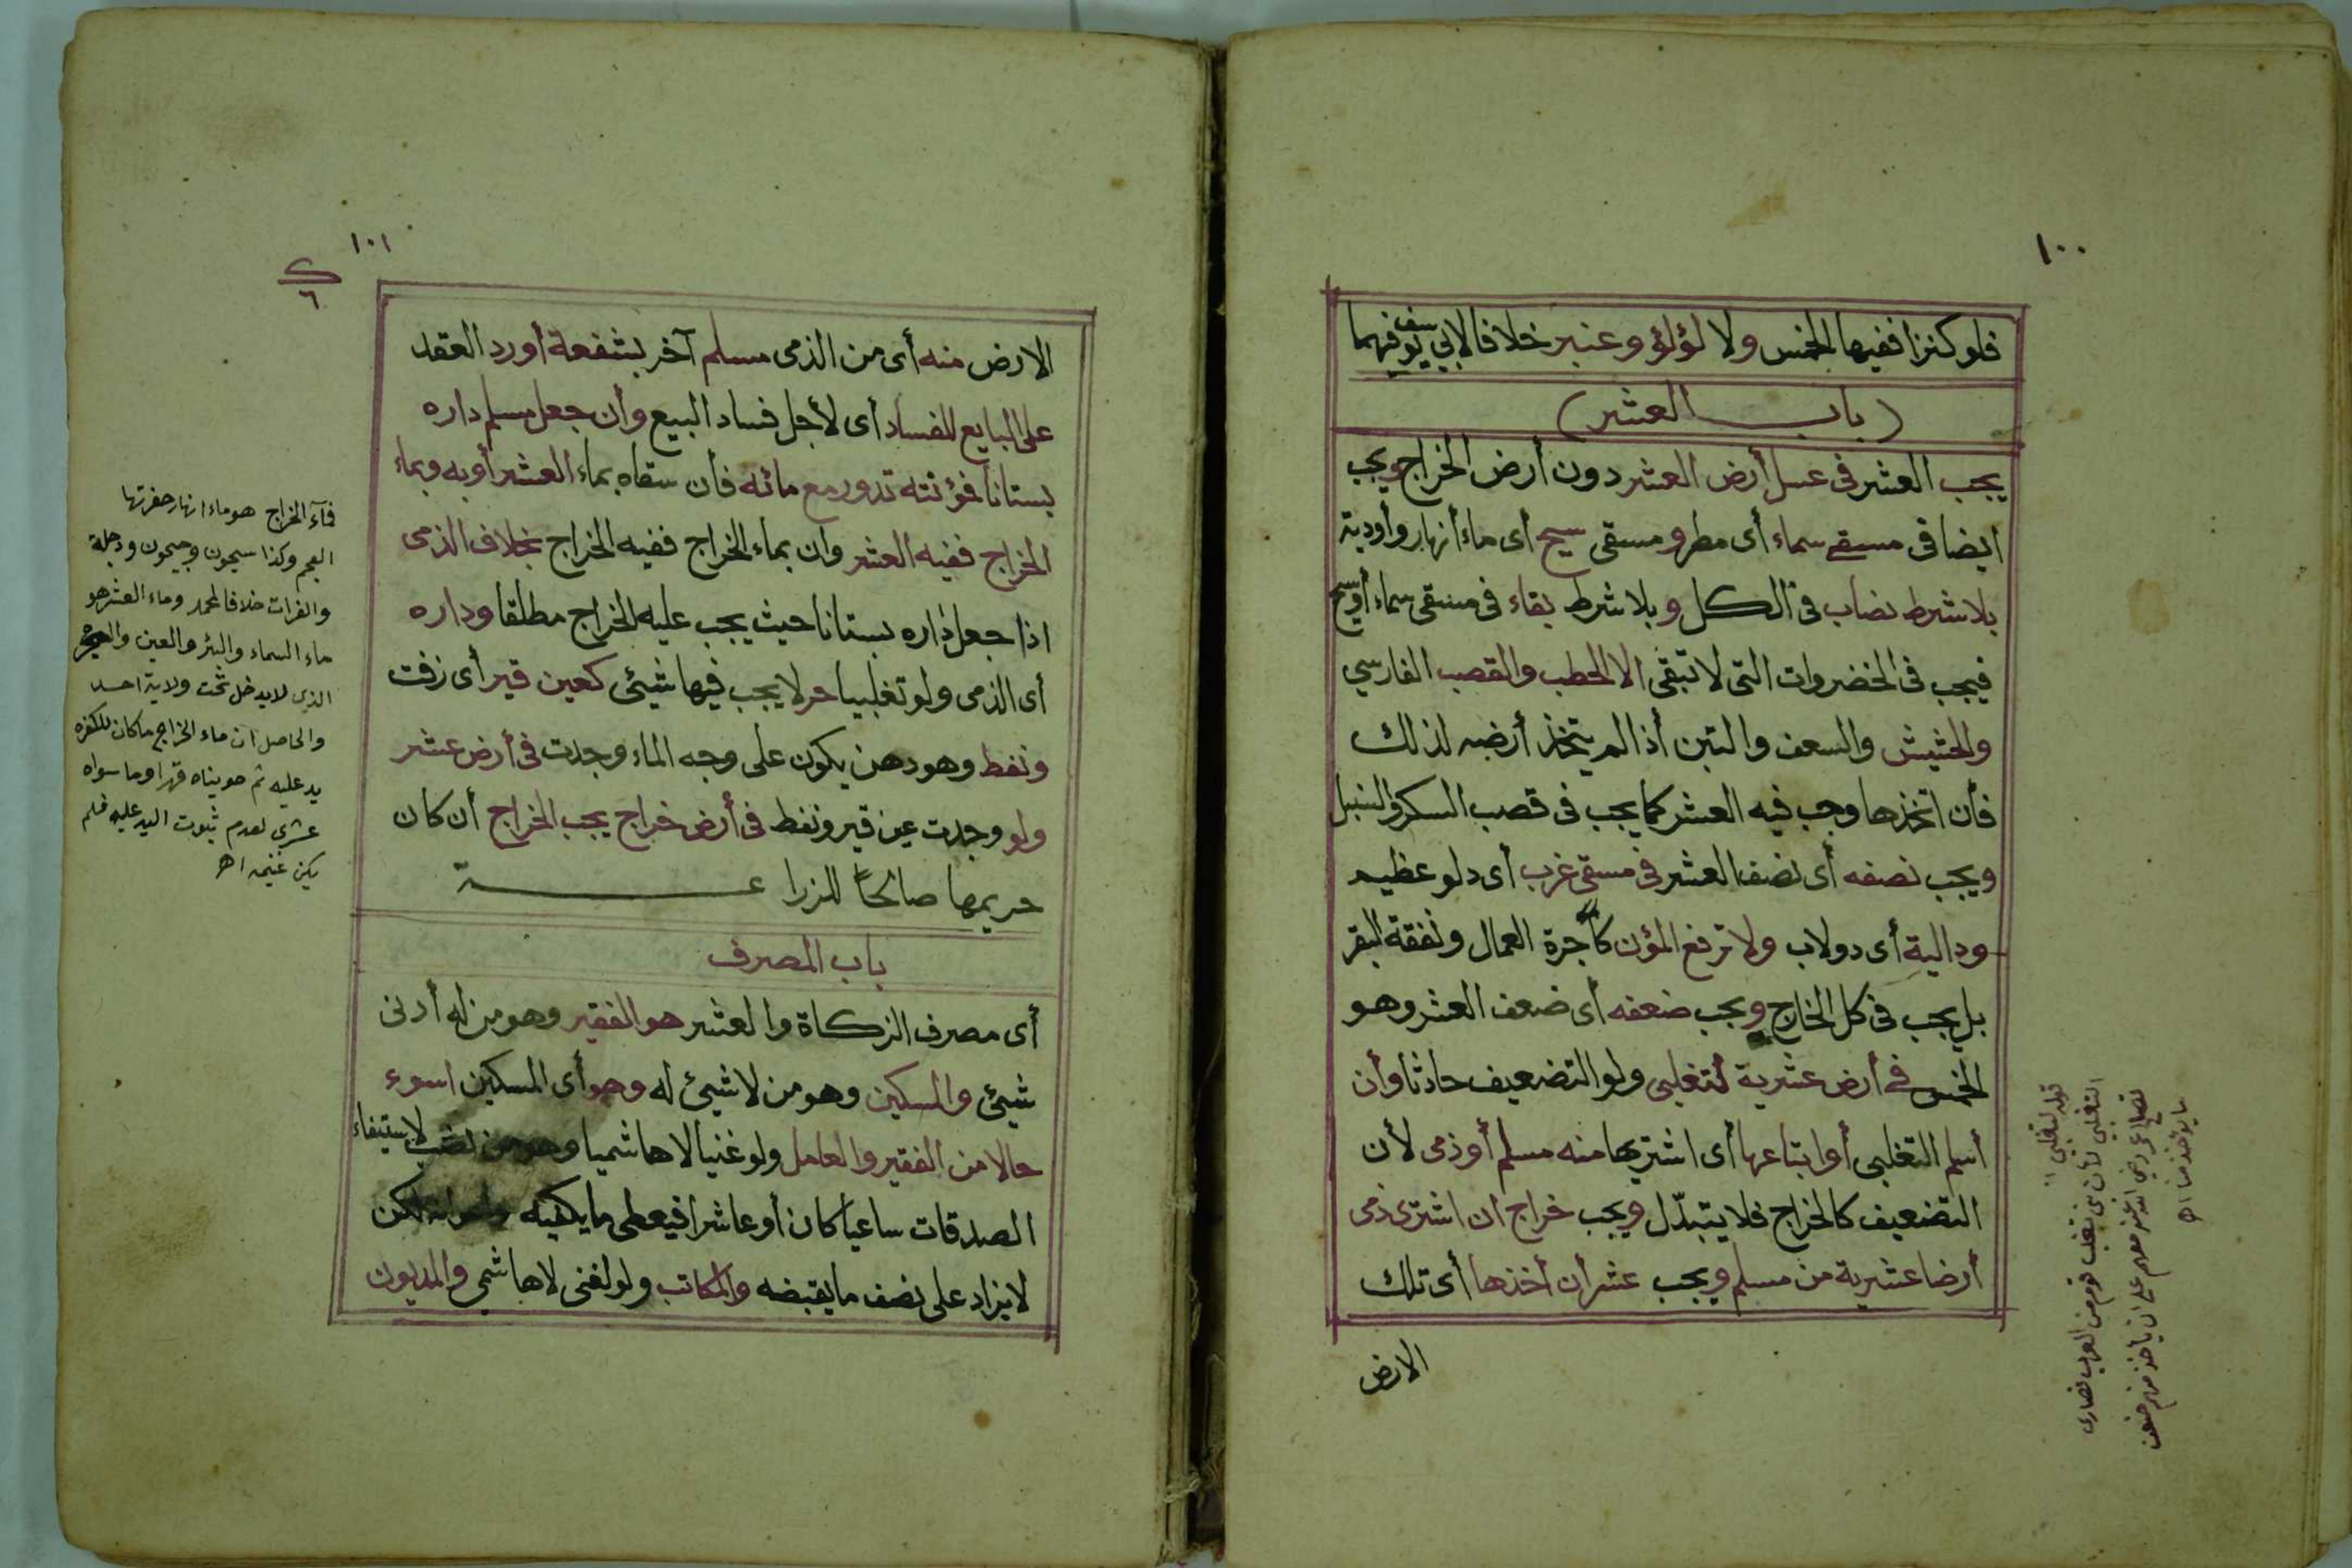 ١٠٠
فلو كنزا ففيها الخمس ولا لؤلؤ وعنبر خلافا لابي يوسف فيهما
(باب العشر)
يجب العشر في عسل أرض العشر دون أرض الخراج ويجب
ايضا في مسقى سماء أى مطر ومسقى سيح أى ماء أنهار وأودية
بلا شرط نصاب في الكل وبلا شرط بقاء في مسقى سماء أو سيح
فيجب في الخضروات التى لا تبقى الا الحطب والقصب الفارسي
والحشيش والسعف والتبن أذا لم يتخذ أرضه لذلك
فأن اتخذها وجب فيه العشر كما يجب في قصب السكر والسنبل
ويجب نصفه أى نصف العشر في مسقى غرب أى دلو عظيم
ودالية أى دولاب ولا ترفع المؤن كأجرة العمال ونفقة البقر
بل يجب في كل الخارج ويجب ضعفه أى ضعف العشر وهو
الخمس في أرض عشرية لتغلبى ولو التضعيف حادثا وأن
أسلم التغلبى أو ابتاعها أى اشتريها منه مسلم أو ذمى لأن
التضعيف كالخراج فلا يتبدّل ويجب خراج ان اشترى ذمى
أرضا عشرية من مسلم ويجب عشر أن أخذها أى تلك
الارض
قوله لتغلبي
التغلبي لأن بنى تغلب قوم من العرب نصارى
تصالح عمر رضي الله عنه معهم على ان يأخذ منهم ضعف
ما يؤخذ منا اه
١٠١
الارض منه أى من الذمى مسلم آخر بشفعة أو رد العقد
على البايع للفساد أى لأجل فساد البيع وأن جعل مسلم داره
بستانا فمؤنته تدور مع مائه فأن سقاه بماء العشر أو به وبماء
الخراج ففيه العشر وان بماء الخراج ففيه الخراج بخلاف الذمى
اذا جعل داره بستانا حيث يجب عليه الخراج مطلقا وداره
أى الذمى ولو تغلبيا حر لا يجب فيها شيئ كعين قير أى زفت
ونفط وهو دهن يكون على وجه الماء وجدت في أرض عشر
ولو وجدت عين قير ونفط في أرض خراج يجب الخراج أن كان
حريمها صالحاً للزراعة
باب المصرف
أى مصرف الزكاة والعشر هو الفقير وهو من له أدنى
شيئ والمسكين وهو من لا شيئ له وهو أى المسكين اسوء
حالا من الفقير والعامل ولو غنيا لا هاشميا وهو من نصب لاستيفاء
الصدقات ساعيا كان أو عاشرا فيعطى ما يكفيه لكن
لا يزاد على نصف ما يقبضه والمكاتب ولو لغنى لا هاشمي والمديون
فماء الخراج هو ماء انهار حفرتها
العجم وكذا سيحون وجيحون ودجلة
والفرات خلافا لمحمد وماء العشر هو
ماء السماء والبئر والعين والبحر
الذى لا يدخل تحت ولاية احد
والحاصل ان ماء الخراج ما كان للكفره
يد عليه ثم حويناه قهرا وما سواه
عشرى لعدم ثبوت اليد عليه فلم
يكن غنيمه اه